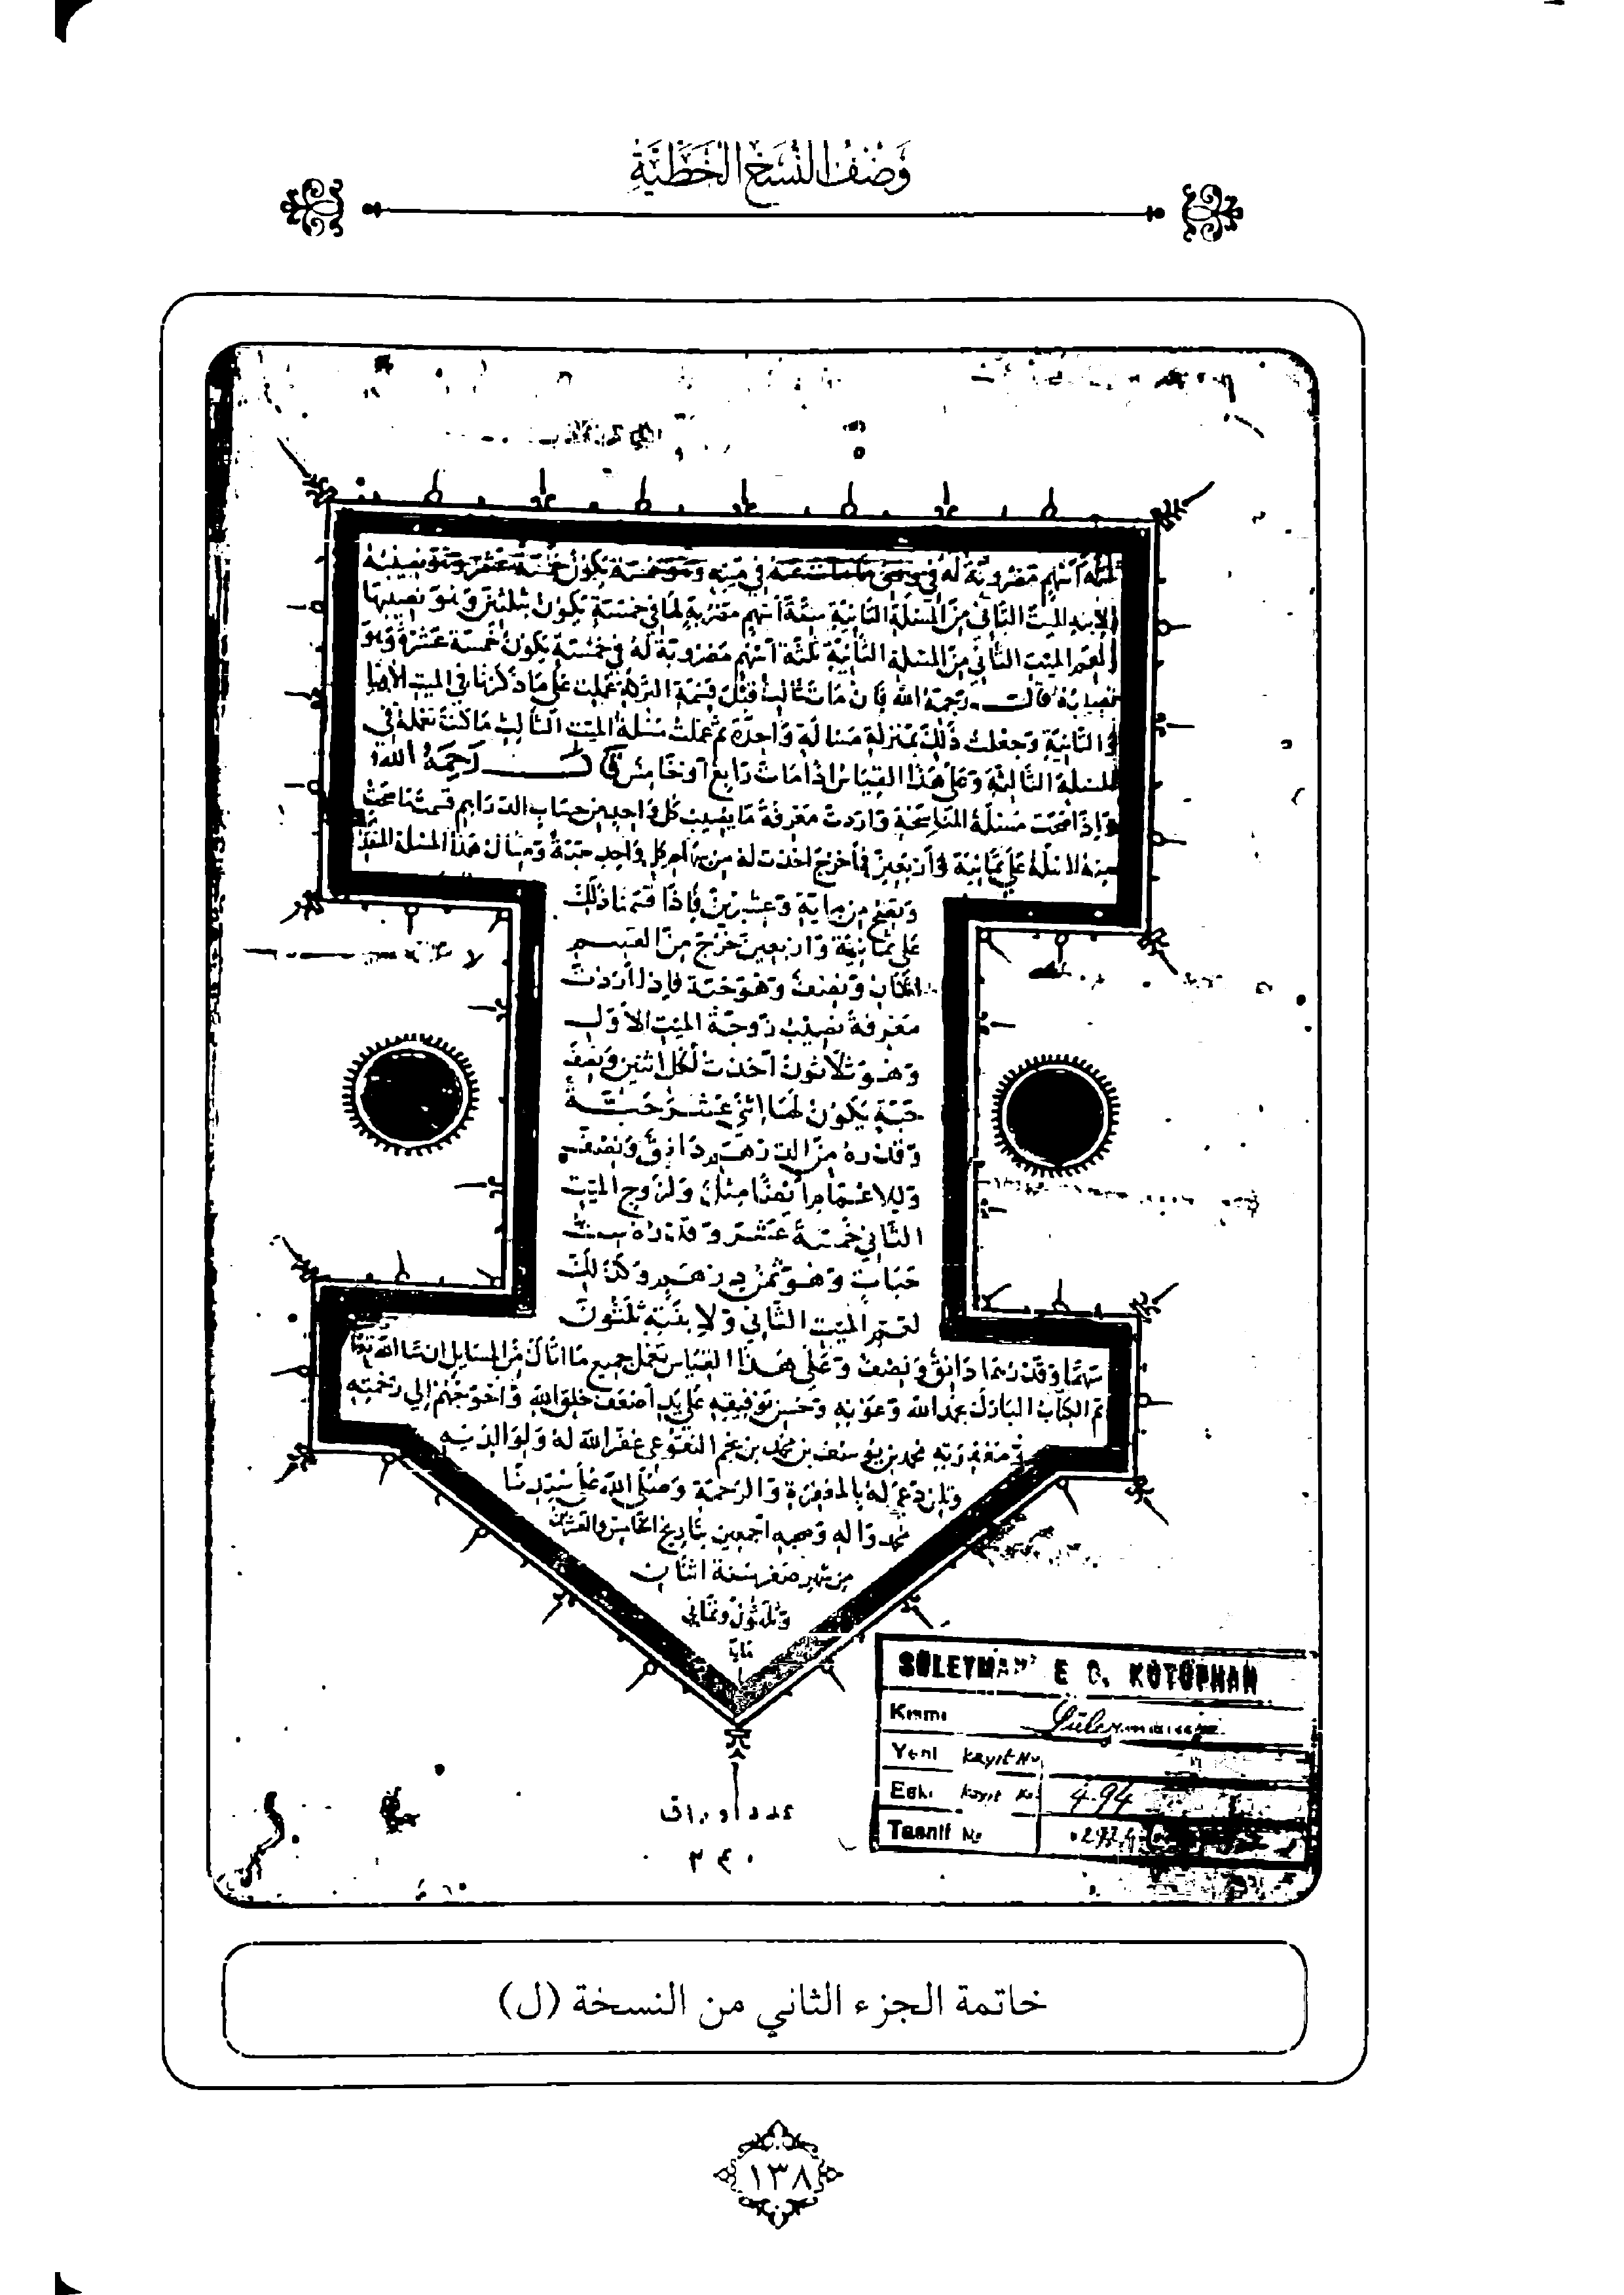 وَصْفُ النُّسَخِ الخَطِّيَّةِ
ثلثة أسهم مضروبة له في في خمسة يكون خمسة عشر وهو نصيبه
لابنه الميت الثاني من المسئلة الثانية ستة أسهم مضروبة لها في خمسة يكون ثلثين وهو نصيبها
لعم الميت الثاني من المسئلة الثانية ثلثة أسهم مضروبة له في خمسة يكون خمسة عشرة وهو
نصيبه قال رحمه الله فان مات ثالث قبل قسمة التركة عملت على ما ذكرنا في الميت الأول
والثانية وجعلت ذلك بمنزلة مسالة واحدة ثم عملت مسئلة الميت الثالث ما كنت تعمله في
المسئلة الثالثة وعلى هذا القياس اذا مات رابع أو خامس قال رحمه الله
وإذا صحت مسئلة المناسخة واردت معرفة ما يصيب كل واحد من حساب الدراهم قسمت ما صحت
منه المسئلة على ثمانية وأربعين فما خرج اخذت له من سهام كل واحد حبة ومثال هذا المسئلة المتقدمة
وتصح من ماية وعشرين فاذا قسمنا ذلك
على ثمانية واربعين خرج من القسم
اثنان ونصف وهو حبة فإذا أردت
معرفة نصيب زوجة الميت الأول
وهو ثلاثون أخذت لكل اثنين ونصف
حبة يكون لها اثنى عشر حبة
وقدره من الدرهم دانق ونصف
وللاعمام أيضا مثل ولزوج الميت
الثاني خمسة عشر وقدره ست
حبات وهو ثمن درهم وكذلك
لعم الميت الثاني ولابنته ثلثون
سهما وقدرهما دانق ونصف وعلى هذا القياس تعمل جميع ما اتاك من المسايل ان شا الله تعالى
تم الكتاب المبارك بحمد الله وعونه وحسن توفيقه على يد أضعف خلق الله واحوجهم إلى رحمته
ومغفرته محمد بن يوسف بن محمد بن نجم غفر الله له ولوالديه
ولمن دعى له بالمغفرة والرحمة وصلى الله على سيدنا
محمد واله وصحبه اجمعين بتاريخ الخامس والعشرين
من شهر صفر سنة اثنان
وثلثون وثماني
ماية
عدد اوراق
٢٤٠
SÜLEYMANİYE G. KÜTÜPHAN
Kısmı Süleymaniye
Yeni kayıt No.
Eski kayıt No. 494
Tasnif No
خاتمة الجزء الثاني من النسخة (ل)
١٣٨